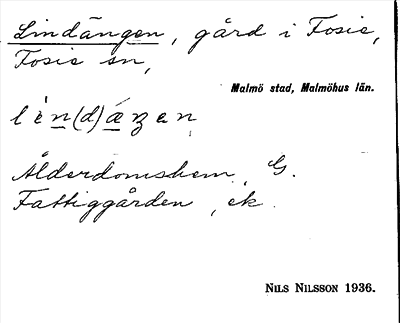 Lindängen, gård i Fosie,
Fosie sn,
Malmö stad, Malmöhus län.
Ålderdomshem, G.
Fattiggården, ek.
NILS NILSSON 1936.